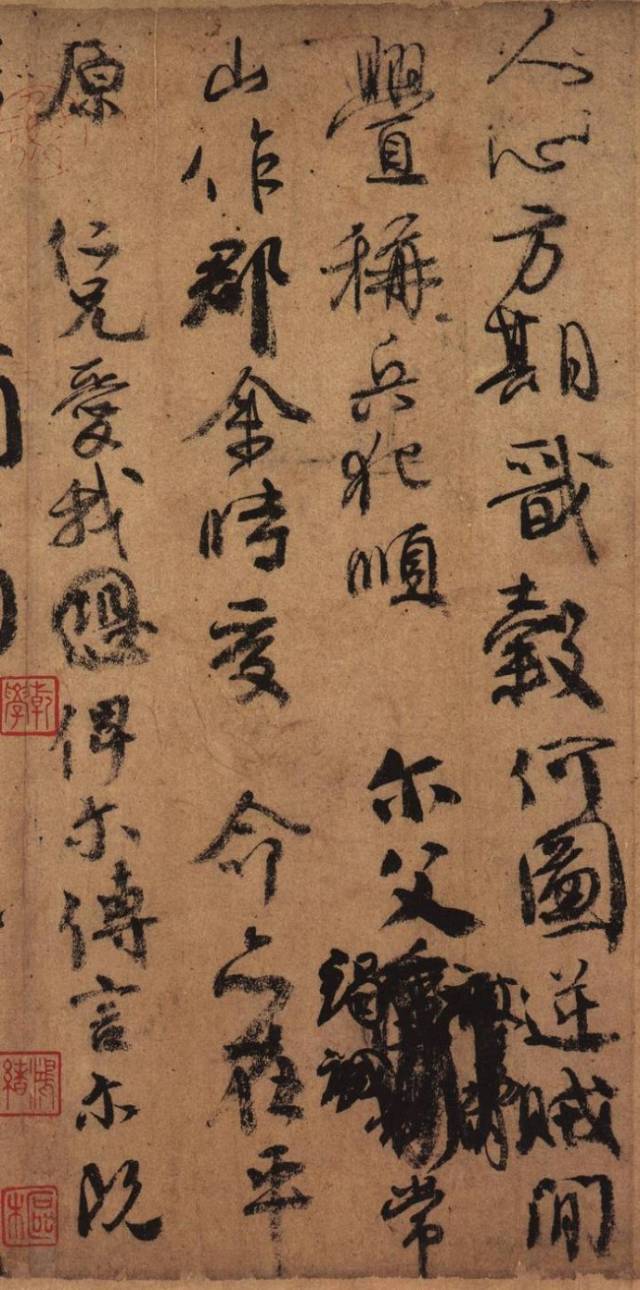 人心方期戩穀何圖逆賊閒
釁稱兵犯順 尔父竭誠常
山作郡余時受 命亦在平
原 仁兄愛我俾尔傳言尔既